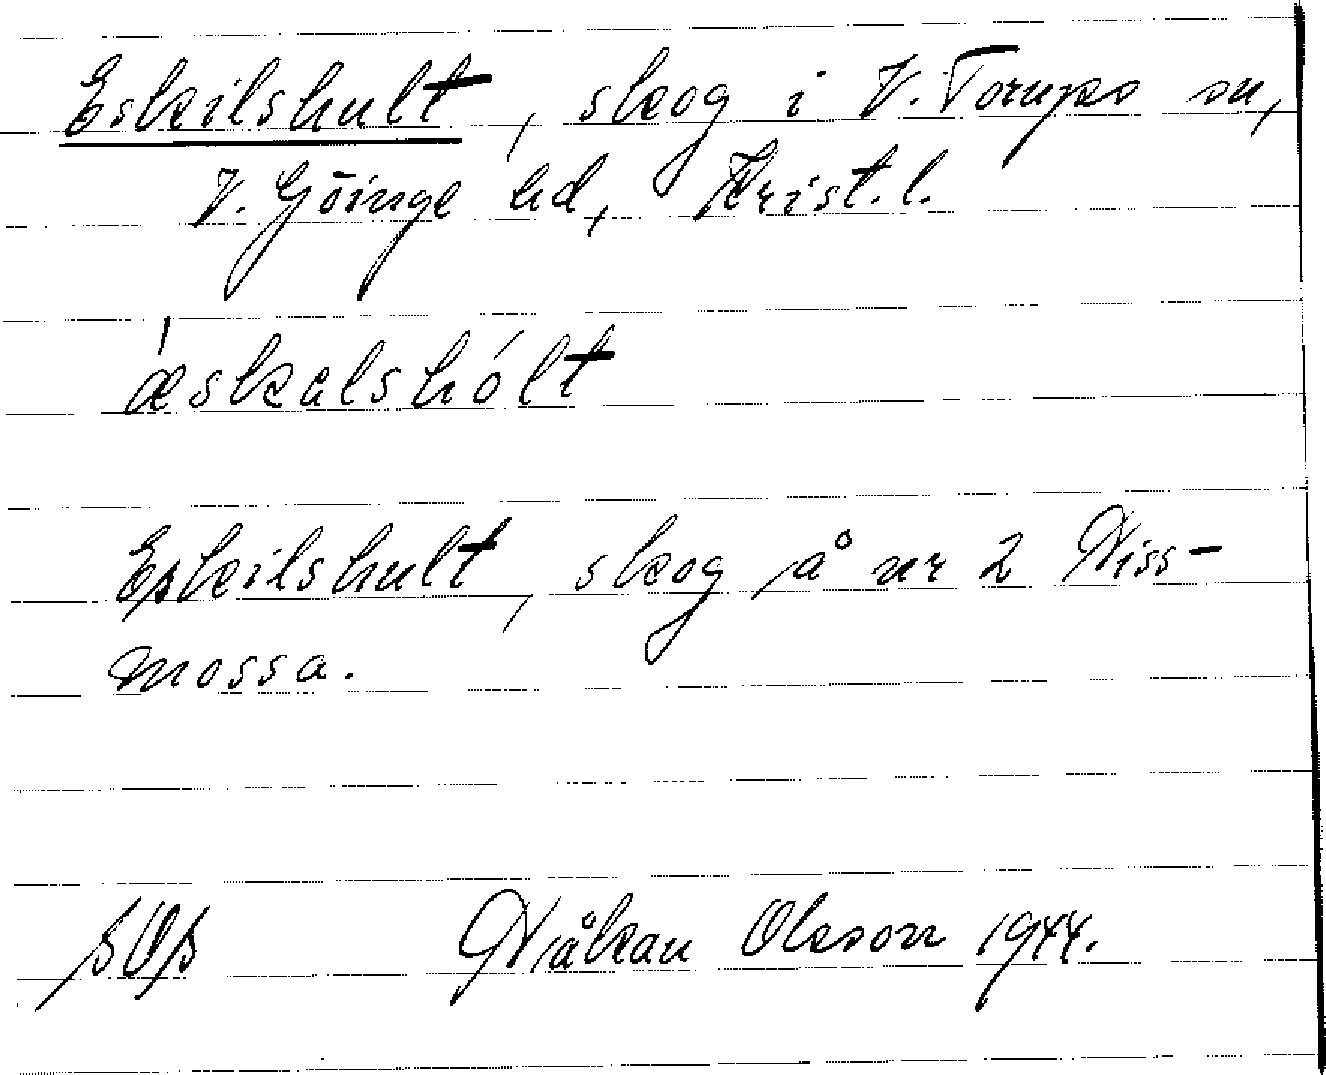 Eskilshult, skog i V. Torups sn,
V. Göinge hd, Krist. l.
ˈæskəlshólt
Eskilshult, skog på nr 2 Hiss-
mossa.
SOS Håkan Olsson 1944.